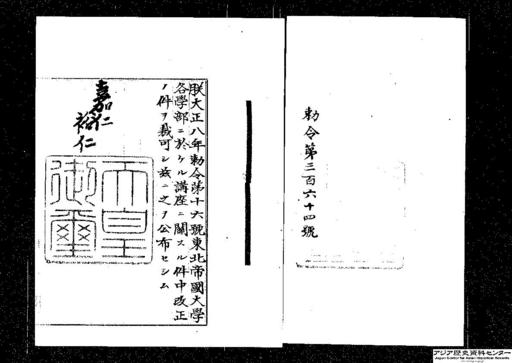 勅令第三百六十四號
朕大正八年勅令第十六號東北帝國大學
各學部ニ於ケル講座ニ關スル件中改正
ノ件ヲ裁可シ茲ニ之ヲ公布セシム
嘉仁
裕仁
天皇御璽
アジア歴史資料センター
Japan Center for Asian Historical Records